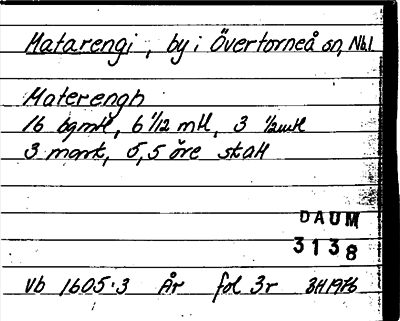 Matarengi, by i Övertorneå sn, Nb.l.
Materengh
16 bgmtl, 6 1/12 mtl, 3 1/2 mtl
3 mark, 5,5 öre skatt
DAUM
3138
Vb 1605:3 År fol 3r BH 1976